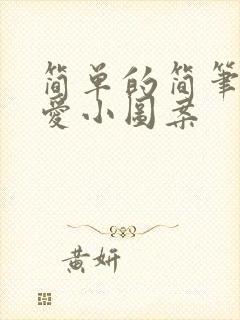 简单的简笔
爱小图案
黄妍